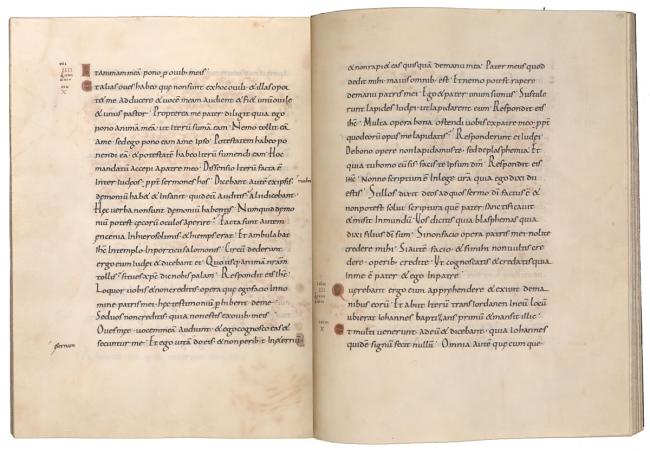 Et animam meā pono p ouib; meis·
Et alias oues habeo quę non sunt ex hoc ouili· & illas opor
t& me adducere & uocē meam audient & fi& unū ouile
& unus pastor· Propterea me pater diligit quia ego
pono animā meā· ut iterū sumā eam· Nemo tollit eā
a me· sed ego pono eam a me ipso· Potestatem habeo po
nendi eā· & potestatē habeo iterū sumendi eam· Hoc
mandatū accepi a patre meo· Dissensio iterū facta ē
inter iudeos· pp̄t sermones hos· Dicebant autē ex ipsis·
demoniū hab& & insanit· quid eū auditis· alii dicebant·
Hęc uerba non sunt demoniū habentis· Numquid demo
niū potest cęcorū oculos aperire· Facta sunt autem
encenia in hierosolimis· & hiemps erat· Et ambulabat
ihc̄ in templo· in porticu salomonis· Circūdederunt
ergo eum iudei & dicebant ei· Quo usq; animā nr̄am
tollis· si tu es xp̄c dic nobis palam· Respondit eis ihc̄·
Loquor uobis & non creditis· opera quę ego facio in no
mine patris mei· hęc testimoniū phibent de me·
Sed uos non creditis· quia non estis ex ouib; meis·
Oues meę uocem meā audiunt· & ego cognosco eas &
secuntur me· Et ego uitā do eis· & non peribt in &ernū·
& non rapi& eas quisquā de manu mea· Pater meus quod
dedit mihi· maius omnib; est· Et nemo potest rapere
de manu patris mei· Ego & pater unum sumus· Sustule
runt lapides iudęi· ut lapidarent eum· Respondit eis
ihc̄· Multa opera bona ostendi uobis ex patre meo· pp̄t
quod eorū opus me lapidatis· Responderunt ei iudęi
De bono opere non lapidamus te· sed de blasphemia· Et
quia tu homo cū sis· facis te ipsum dm̄· Respondit eis
ihc̄· Nonne scriptum ē in lege ur̄a quia ego dixi dii
estis· Si illos dixit deos ad quos sermo dī factus ē &
non potest solui scriptura· quē pater sanctificauit
& misit in mundū· Vos dicitis quia blasphemas· quia
dixi filius dī sum· Si non facio opera patris mei· nolite
credere mihi· Si autē facio· & si mihi non uultis cre
dere· operib; credite· Vt cognoscatis & credatis quia
in me ē pater & ego in patre·
Quęrebant ergo eum apprehendere· & exiuit de ma
nibus eorū· Et abiit iterū trans iordanen in eū locū
ubi erat iohannes baptizans primū & mansit illic·
Et multi uenerunt ad eū & dicebant· quia iohannes
quidē signū fecit nullū· Omnia autē quęcumque